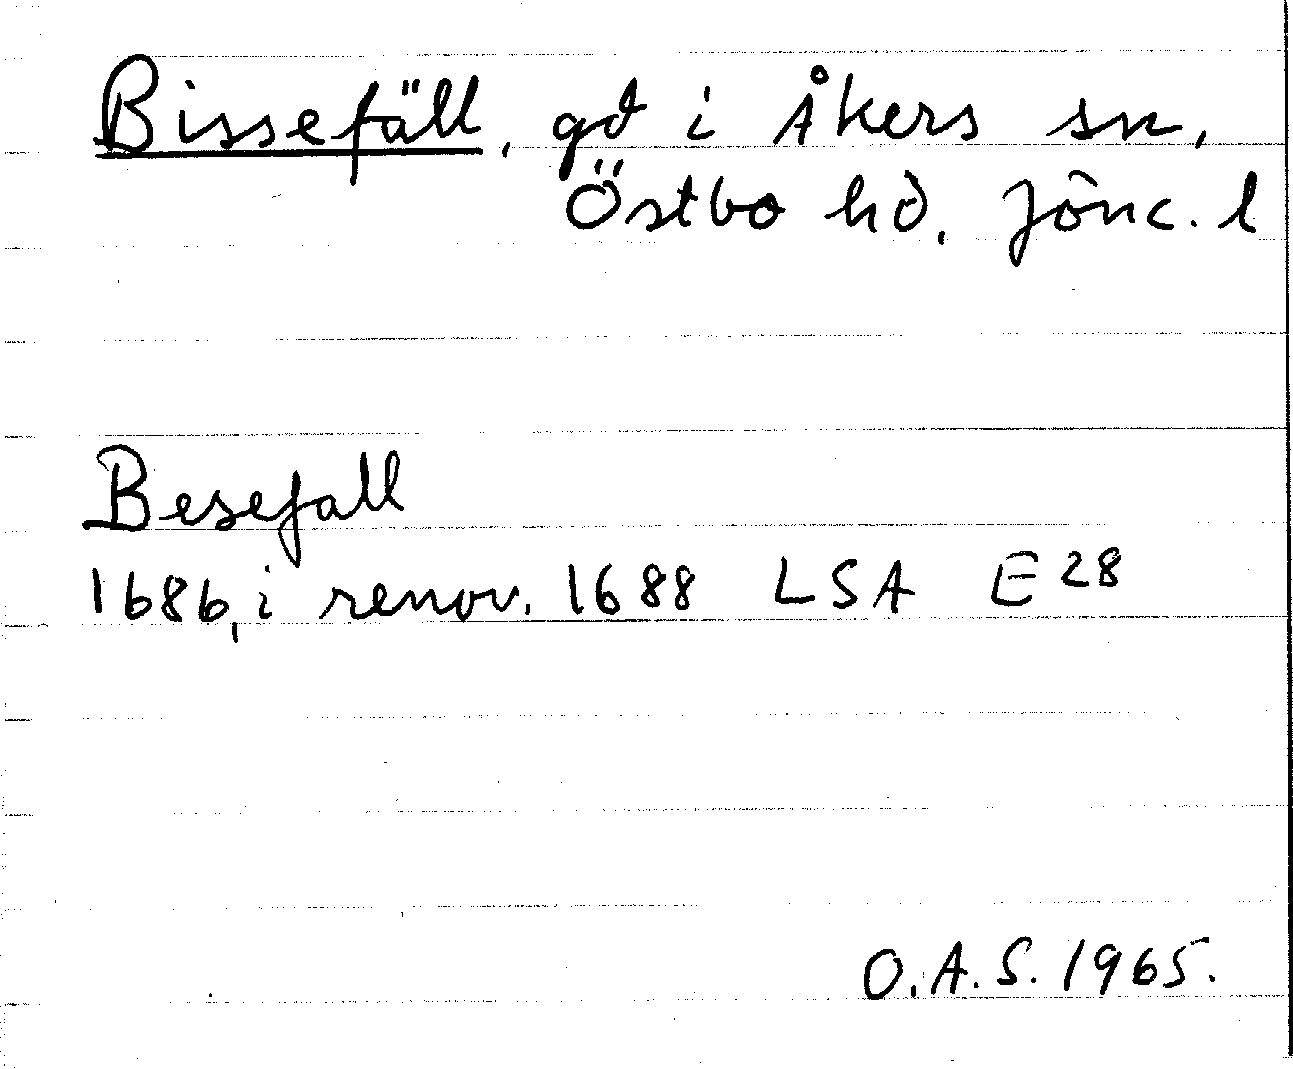 Bissefäll, gd i Åkers sn,
Östbo hd, Jönc. l
Besefall
1686, i renov. 1688 LSA E 28
O.A.S. 1965.